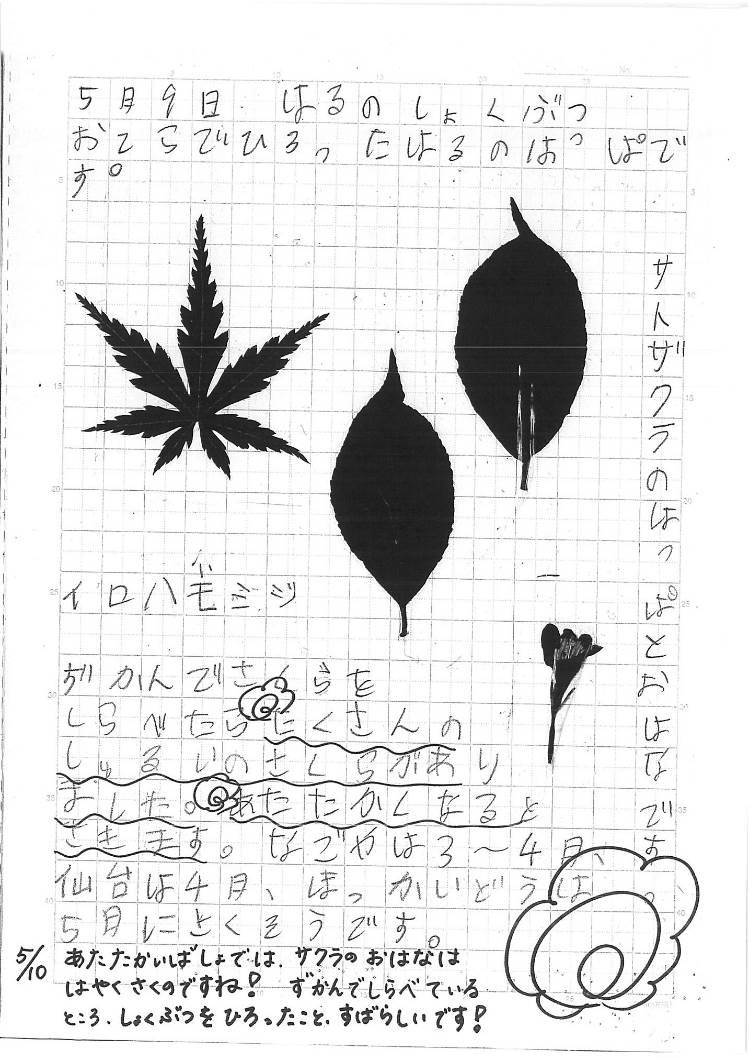 5月9日 はるのしょくぶつ
おてらでひろったはるのはっぱで
す。
サトザクラのはっぱとおはなです。
イロハモミジ
ずかんでさくらを
しらべたらたくさんの
しゅるいのさくらがあり
ました。あたたかくなると
さきます。なごやは3〜4月、
仙台は4月、ほっかいどうは
5月にさくそうです。
5/10 あたたかいばしょでは、サクラのおはなは
はやくさくのですね! ずかんでしらべている
ところ、しょくぶつをひろったこと、すばらしいです!